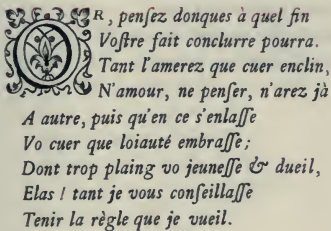 OR, penſez donques à quel fin
Voſtre fait conclurre pourra.
Tant l'amerez que cuer enclin,
N'amour, ne penſer, n'arez jà
A autre, puis qu'en ce s'enlaſſe
Vo cuer que loiauté embraſſe;
Dont trop plaing vo jeuneſſe & dueil,
Elas! tant je vous conſeillaſſe
Tenir la règle que je vueil.